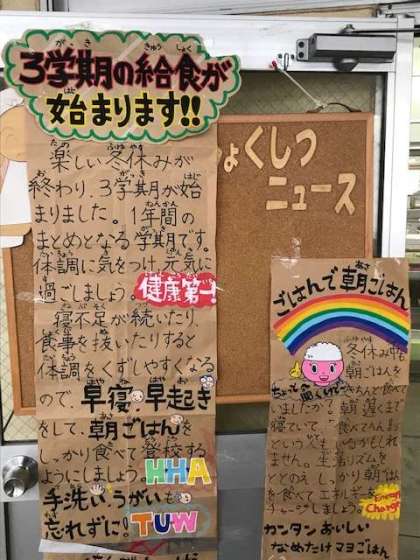 3学期の給食が
始まります!!
楽しい冬休みが
終わり、3学期が始
まりました。1年間の
まとめとなる学期です。
体調に気をつけ、元気に
過ごしましょう。健康第一!
寝不足が続いたり、
食事を抜いたりすると
体調をくずしやすくなる
ので、早寝、早起き
をして、朝ごはんを
しっかり食べて登校する
ようにしましょう。HHA
手洗い、うがいも
忘れずに!TUW
ょくしつ
ニュース
ごはんで朝ごはん
冬休み中も
朝ごはんを
きちんと食べて
いましたか?朝遅くまで
寝ていて、食べてない
という人も いるかもしれ
ません。生活リズムを
ととのえ、しっかり朝ごはん
を食べてエネルギーを
チャージしましょう!Energy Charge
カンタン おいしい
なめたけマヨごはん